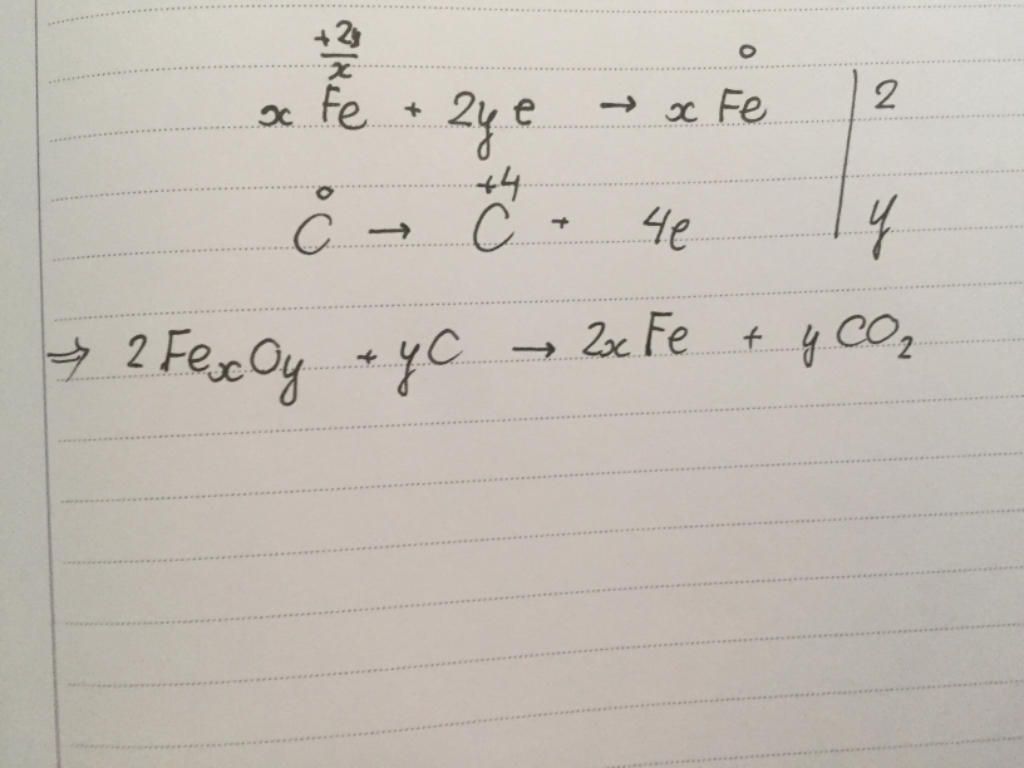 +2y/x 0
x Fe + 2y e → x Fe | 2
0 +4
C → C + 4e | y
⇒ 2 FexOy + yC → 2x Fe + y CO2